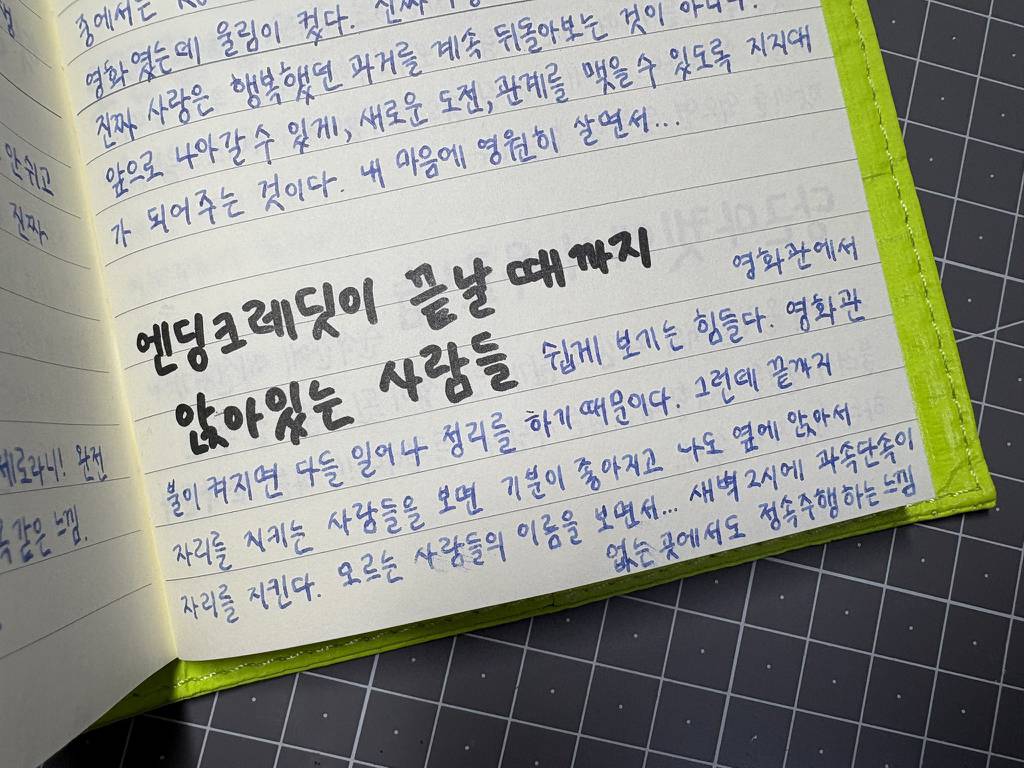 중에서는
영화였는데 울림이 컸다. 진짜
진짜 사랑은 행복했던 과거를 계속 뒤돌아보는 것이 아니라.
앞으로 나아갈 수 있게, 새로운 도전, 관계를 맺을 수 있도록 지지대
가 되어주는 것이다. 내 마음에 영원히 살면서...
엔딩크레딧이 끝날 때까지
앉아있는 사람들
영화관에서
쉽게 보기는 힘들다. 영화관
불이 켜지면 다들 일어나 정리를 하기 때문이다. 그런데 끝까지
자리를 지키는 사람들을 보면 기분이 좋아지고 나도 옆에 앉아서
자리를 지킨다. 모르는 사람들의 이름을 보면서... 새벽 2시에 과속단속이
없는 곳에서도 정속주행하는 느낌
안쉬고
진짜
완전
같은 느낌.